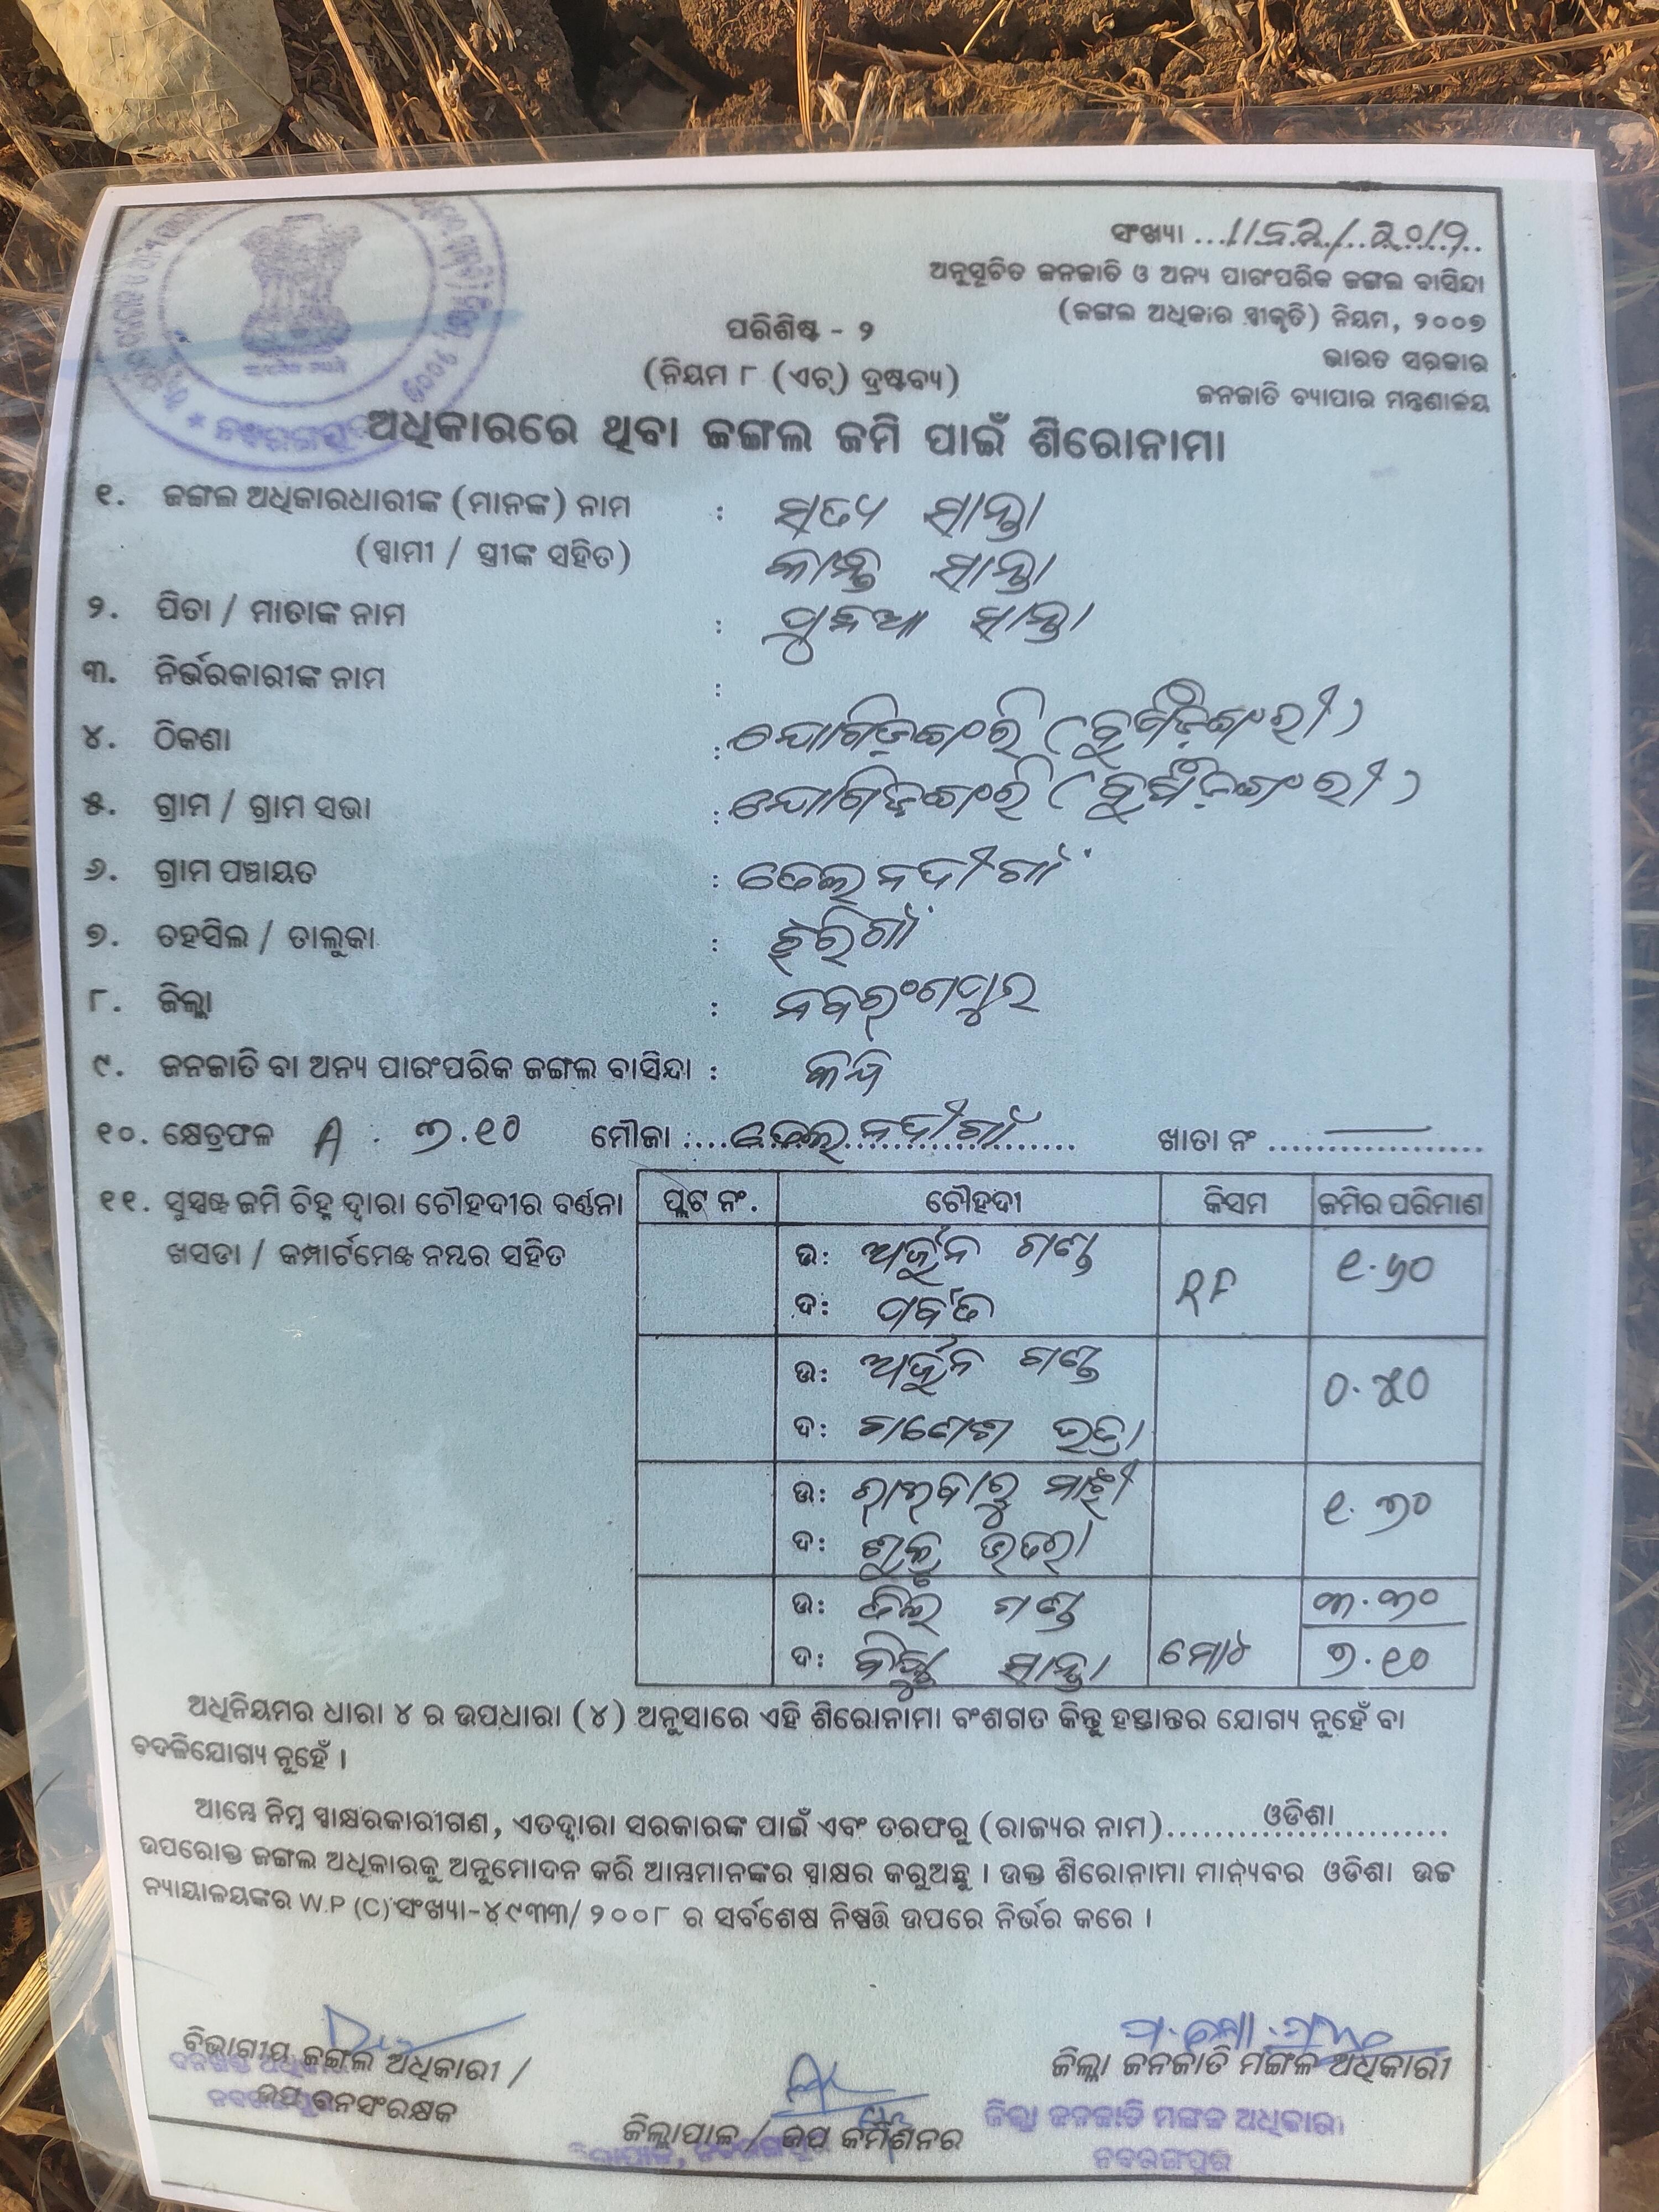 ସଂଖ୍ୟା ...
ଅନୁସୂଚିତ ଜନଜାତି ଓ ଅନ୍ୟ ପାରଂପରିକ ଜଙ୍ଗଲ ବାସିନ୍ଦା
(ଜଙ୍ଗଲ ଅଧିକାର ସ୍ୱୀକୃତି) ନିୟମ, ୨୦୦୭
ଭାରତ ସରକାର
ଜନଜାତି ବ୍ୟାପାର ମନ୍ତ୍ରଣାଳୟ
ପରିଶିଷ୍ଟ - ୨
(ନିୟମ ୮ (ଏଚ୍) ଦ୍ରଷ୍ଟବ୍ୟ)
ଅଧିକାରରେ ଥିବା ଜଙ୍ଗଲ ଜମି ପାଇଁ ଶିରୋନାମା
୧. ଜଙ୍ଗଲ ଅଧିକାରଧାରୀଙ୍କ (ମାନଙ୍କ) ନାମ : ସତ୍ୟ ସାନ୍ତା
(ସ୍ୱାମୀ / ସ୍ତ୍ରୀଙ୍କ ସହିତ) ସାନ୍ତା
୨. ପିତା / ମାତାଙ୍କ ନାମ : ସାନ୍ତା
୩. ନିର୍ଭରକାରୀଙ୍କ ନାମ :
୪. ଠିକଣା :
୫. ଗ୍ରାମ / ଗ୍ରାମ ସଭା :
୬. ଗ୍ରାମ ପଞ୍ଚାୟତ : ତେଲନଦୀଗାଁ
୭. ତହସିଲ / ତାଲୁକା : ଝରିଗାଁ
୮. ଜିଲ୍ଲା : ନବରଂଗପୁର
୯. ଜନଜାତି ବା ଅନ୍ୟ ପାରଂପରିକ ଜଙ୍ଗଲ ବାସିନ୍ଦା :
୧୦. କ୍ଷେତ୍ରଫଳ A. ୭.୧୦ ମୌଜା ... ତେଲନଦୀଗାଁ ... ଖାତା ନଂ ...
୧୧. ସୁସ୍ପଷ୍ଟ ଜମି ଚିହ୍ନ ଦ୍ୱାରା ଚୌହଦୀର ବର୍ଣ୍ଣନା
ଖସଡା / କମ୍ପାର୍ଟମେଣ୍ଟ ନମ୍ବର ସହିତ
ପ୍ଲଟ ନଂ. ଚୌହଦୀ କିସମ ଜମିର ପରିମାଣ
ଉ: ଅର୍ଜୁନ ଗଣ୍ଡ RF ୧.୬୦
ଦ: ପର୍ବତ
ଉ: ଅର୍ଜୁନ ଗଣ୍ଡ ୦.୫୦
ଦ: ଗଣେଶ ଭତ୍ରା
ଉ: ରାଇବାରୁ ମାଝୀ ୧.୭୦
ଦ: ଭତରା
ଉ: ଗଣ୍ଡ ୩.୩୦
ଦ: ସାନ୍ତା ମୋଟ ୭.୧୦
ଅଧିନିୟମର ଧାରା ୪ ର ଉପଧାରା (୪) ଅନୁସାରେ ଏହି ଶିରୋନାମା ବଂଶଗତ କିନ୍ତୁ ହସ୍ତାନ୍ତର ଯୋଗ୍ୟ ନୁହେଁ ବା
ବଦଳିଯୋଗ୍ୟ ନୁହେଁ ।
ଆମ୍ଭେ ନିମ୍ନ ସ୍ୱାକ୍ଷରକାରୀଗଣ, ଏତଦ୍ୱାରା ସରକାରଙ୍କ ପାଇଁ ଏବଂ ତରଫରୁ (ରାଜ୍ୟର ନାମ)........ଓଡିଶା........
ଉପରୋକ୍ତ ଜଙ୍ଗଲ ଅଧିକାରକୁ ଅନୁମୋଦନ କରି ଆମ୍ଭମାନଙ୍କର ସ୍ୱାକ୍ଷର କରୁଅଛୁ । ଉକ୍ତ ଶିରୋନାମା ମାନ୍ୟବର ଓଡିଶା ଉଚ୍ଚ
ନ୍ୟାୟାଳୟଙ୍କର W.P (C) ସଂଖ୍ୟା-୪୯୩୩/୨୦୦୮ ର ସର୍ବଶେଷ ନିଷ୍ପତ୍ତି ଉପରେ ନିର୍ଭର କରେ ।
ବିଭାଗୀୟ ଜଙ୍ଗଲ ଅଧିକାରୀ /
ଉପ ବନସଂରକ୍ଷକ
ଜିଲ୍ଲାପାଳ / ଉପ କମିଶନର
ଜିଲ୍ଲା ଜନଜାତି ମଙ୍ଗଳ ଅଧିକାରୀ
ଜିଲ୍ଲା ଜନଜାତି ମଙ୍ଗଳ ଅଧିକାରୀ
ନବରଙ୍ଗପୁର